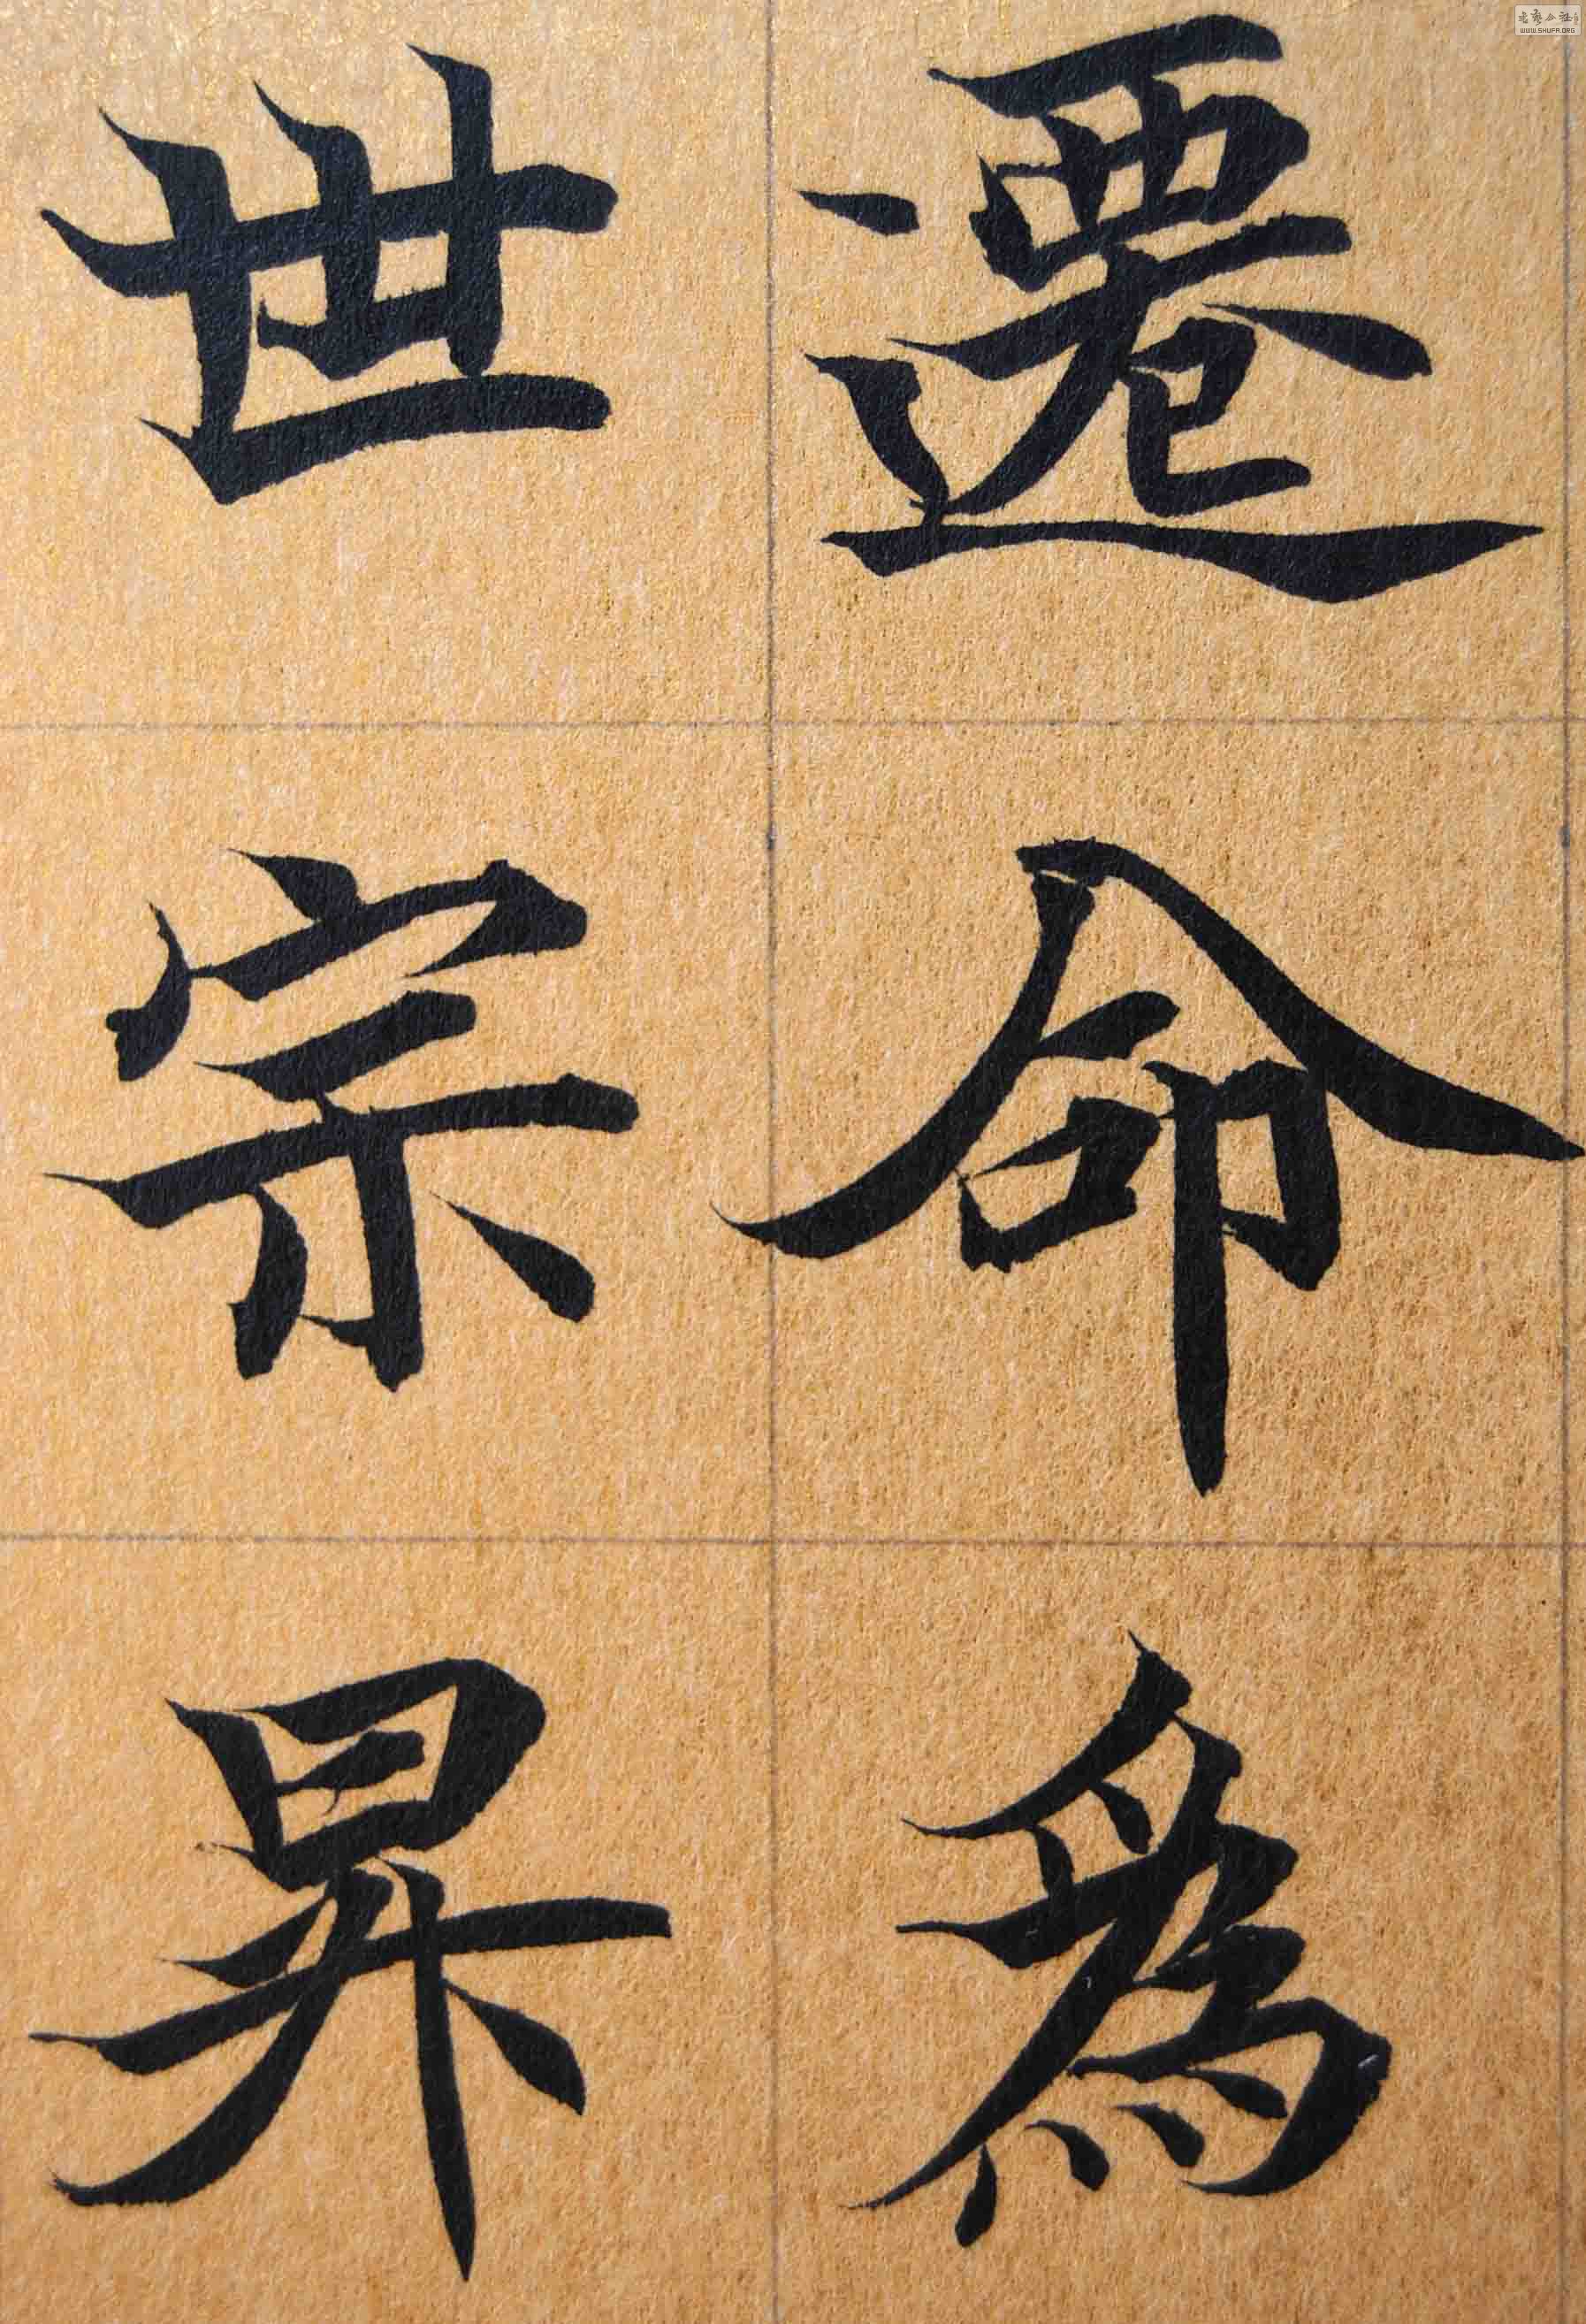 遷命為
世宗昇
WWW.SHUFA.ORG